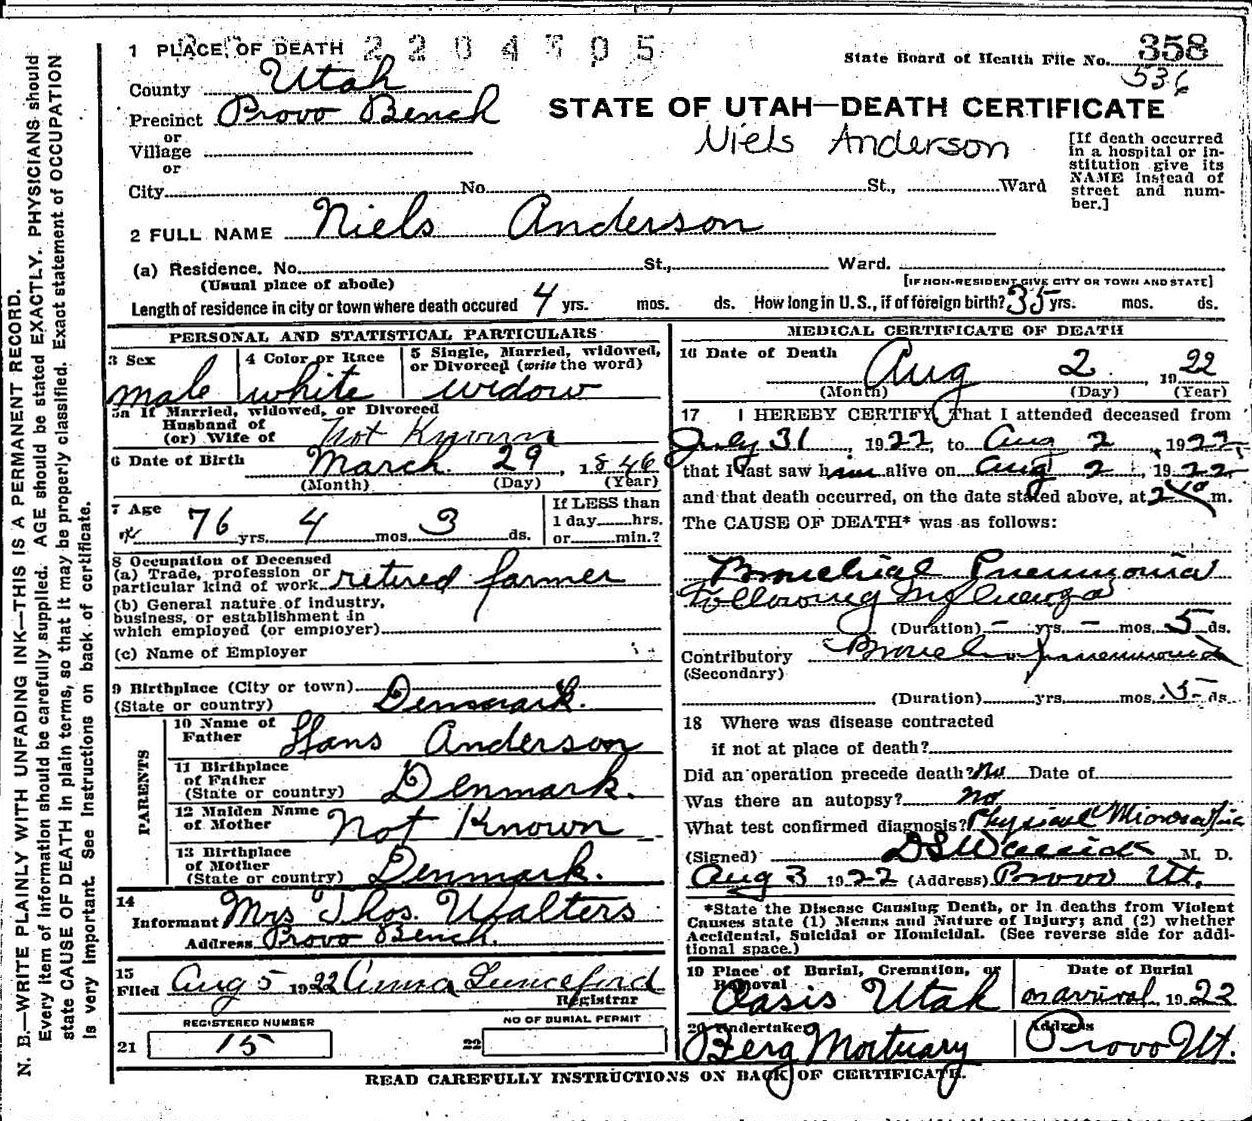 1 PLACE OF DEATH 2204305
State Board of Health File No. 358
536
County Utah
Precinct Provo Bench
or
Village
or
STATE OF UTAH—DEATH CERTIFICATE
Niels Anderson
[If death occurred in a hospital or institution give its NAME instead of street and number.]
City No. St., Ward
2 FULL NAME Niels Anderson
(a) Residence. No. St., Ward.
(Usual place of abode) [IF NON-RESIDENT GIVE CITY OR TOWN AND STATE]
Length of residence in city or town where death occured 4 yrs. mos. ds. How long in U. S., if of foreign birth? 35 yrs. mos. ds.
PERSONAL AND STATISTICAL PARTICULARS
3 Sex male
4 Color or Race white
5 Single, Married, widowed, or Divorced (write the word) widow
5a If Married, widowed, or Divorced
Husband of
(or) Wife of Not Known
6 Date of Birth March 29, 1846
(Month) (Day) (Year)
7 Age 76 yrs. 4 mos. 3 ds.
If LESS than
1 day hrs.
or min.?
8 Occupation of Deceased
(a) Trade, profession or
particular kind of work retired farmer
(b) General nature of industry,
business, or establishment in
which employed (or employer)
(c) Name of Employer
9 Birthplace (City or town)
(State or country) Denmark.
PARENTS
10 Name of Father Hans Anderson
11 Birthplace of Father
(State or country) Denmark.
12 Maiden Name of Mother Not Known
13 Birthplace of Mother
(State or country) Denmark.
14
Informant Mrs Thos. Walters
Address Provo Bench.
15
Filed Aug 5 1922 Anna Lunceford
Registrar
REGISTERED NUMBER
21 15
NO OF BURIAL PERMIT
22
MEDICAL CERTIFICATE OF DEATH
16 Date of Death Aug 2, 1922
(Month) (Day) (Year)
17 I HEREBY CERTIFY, That I attended deceased from
July 31, 1922, to Aug 2, 1922,
that I last saw him alive on Aug 2, 1922
and that death occurred, on the date stated above, at m.
The CAUSE OF DEATH* was as follows:
Bronchial Pneumonia
following Influenza
(Duration) - yrs. - mos. 5 ds.
Contributory Bronchial pneumonia
(Secondary)
(Duration) yrs. mos. 5 ds.
18 Where was disease contracted
if not at place of death?
Did an operation precede death? No Date of
Was there an autopsy? no
What test confirmed diagnosis? Physical
(Signed) M. D.
Aug 3 1922 (Address) Provo Ut.
*State the Disease Causing Death, or in deaths from Violent
Causes state (1) Means and Nature of Injury; and (2) whether
Accidental, Suicidal or Homicidal. (See reverse side for addi-
tional space.)
19 Place of Burial, Cremation, or Removal
Oasis Utah
Date of Burial
on arrival, 1922
20 Undertaker
Berg Mortuary
Address
Provo Ut.
READ CAREFULLY INSTRUCTIONS ON BACK OF CERTIFICATE.
N. B.—WRITE PLAINLY WITH UNFADING INK—THIS IS A PERMANENT RECORD.
Every item of information should be carefully supplied. AGE should be stated EXACTLY. PHYSICIANS should
state CAUSE OF DEATH in plain terms, so that it may be properly classified. Exact statement of OCCUPATION
is very important. See instructions on back of certificate.